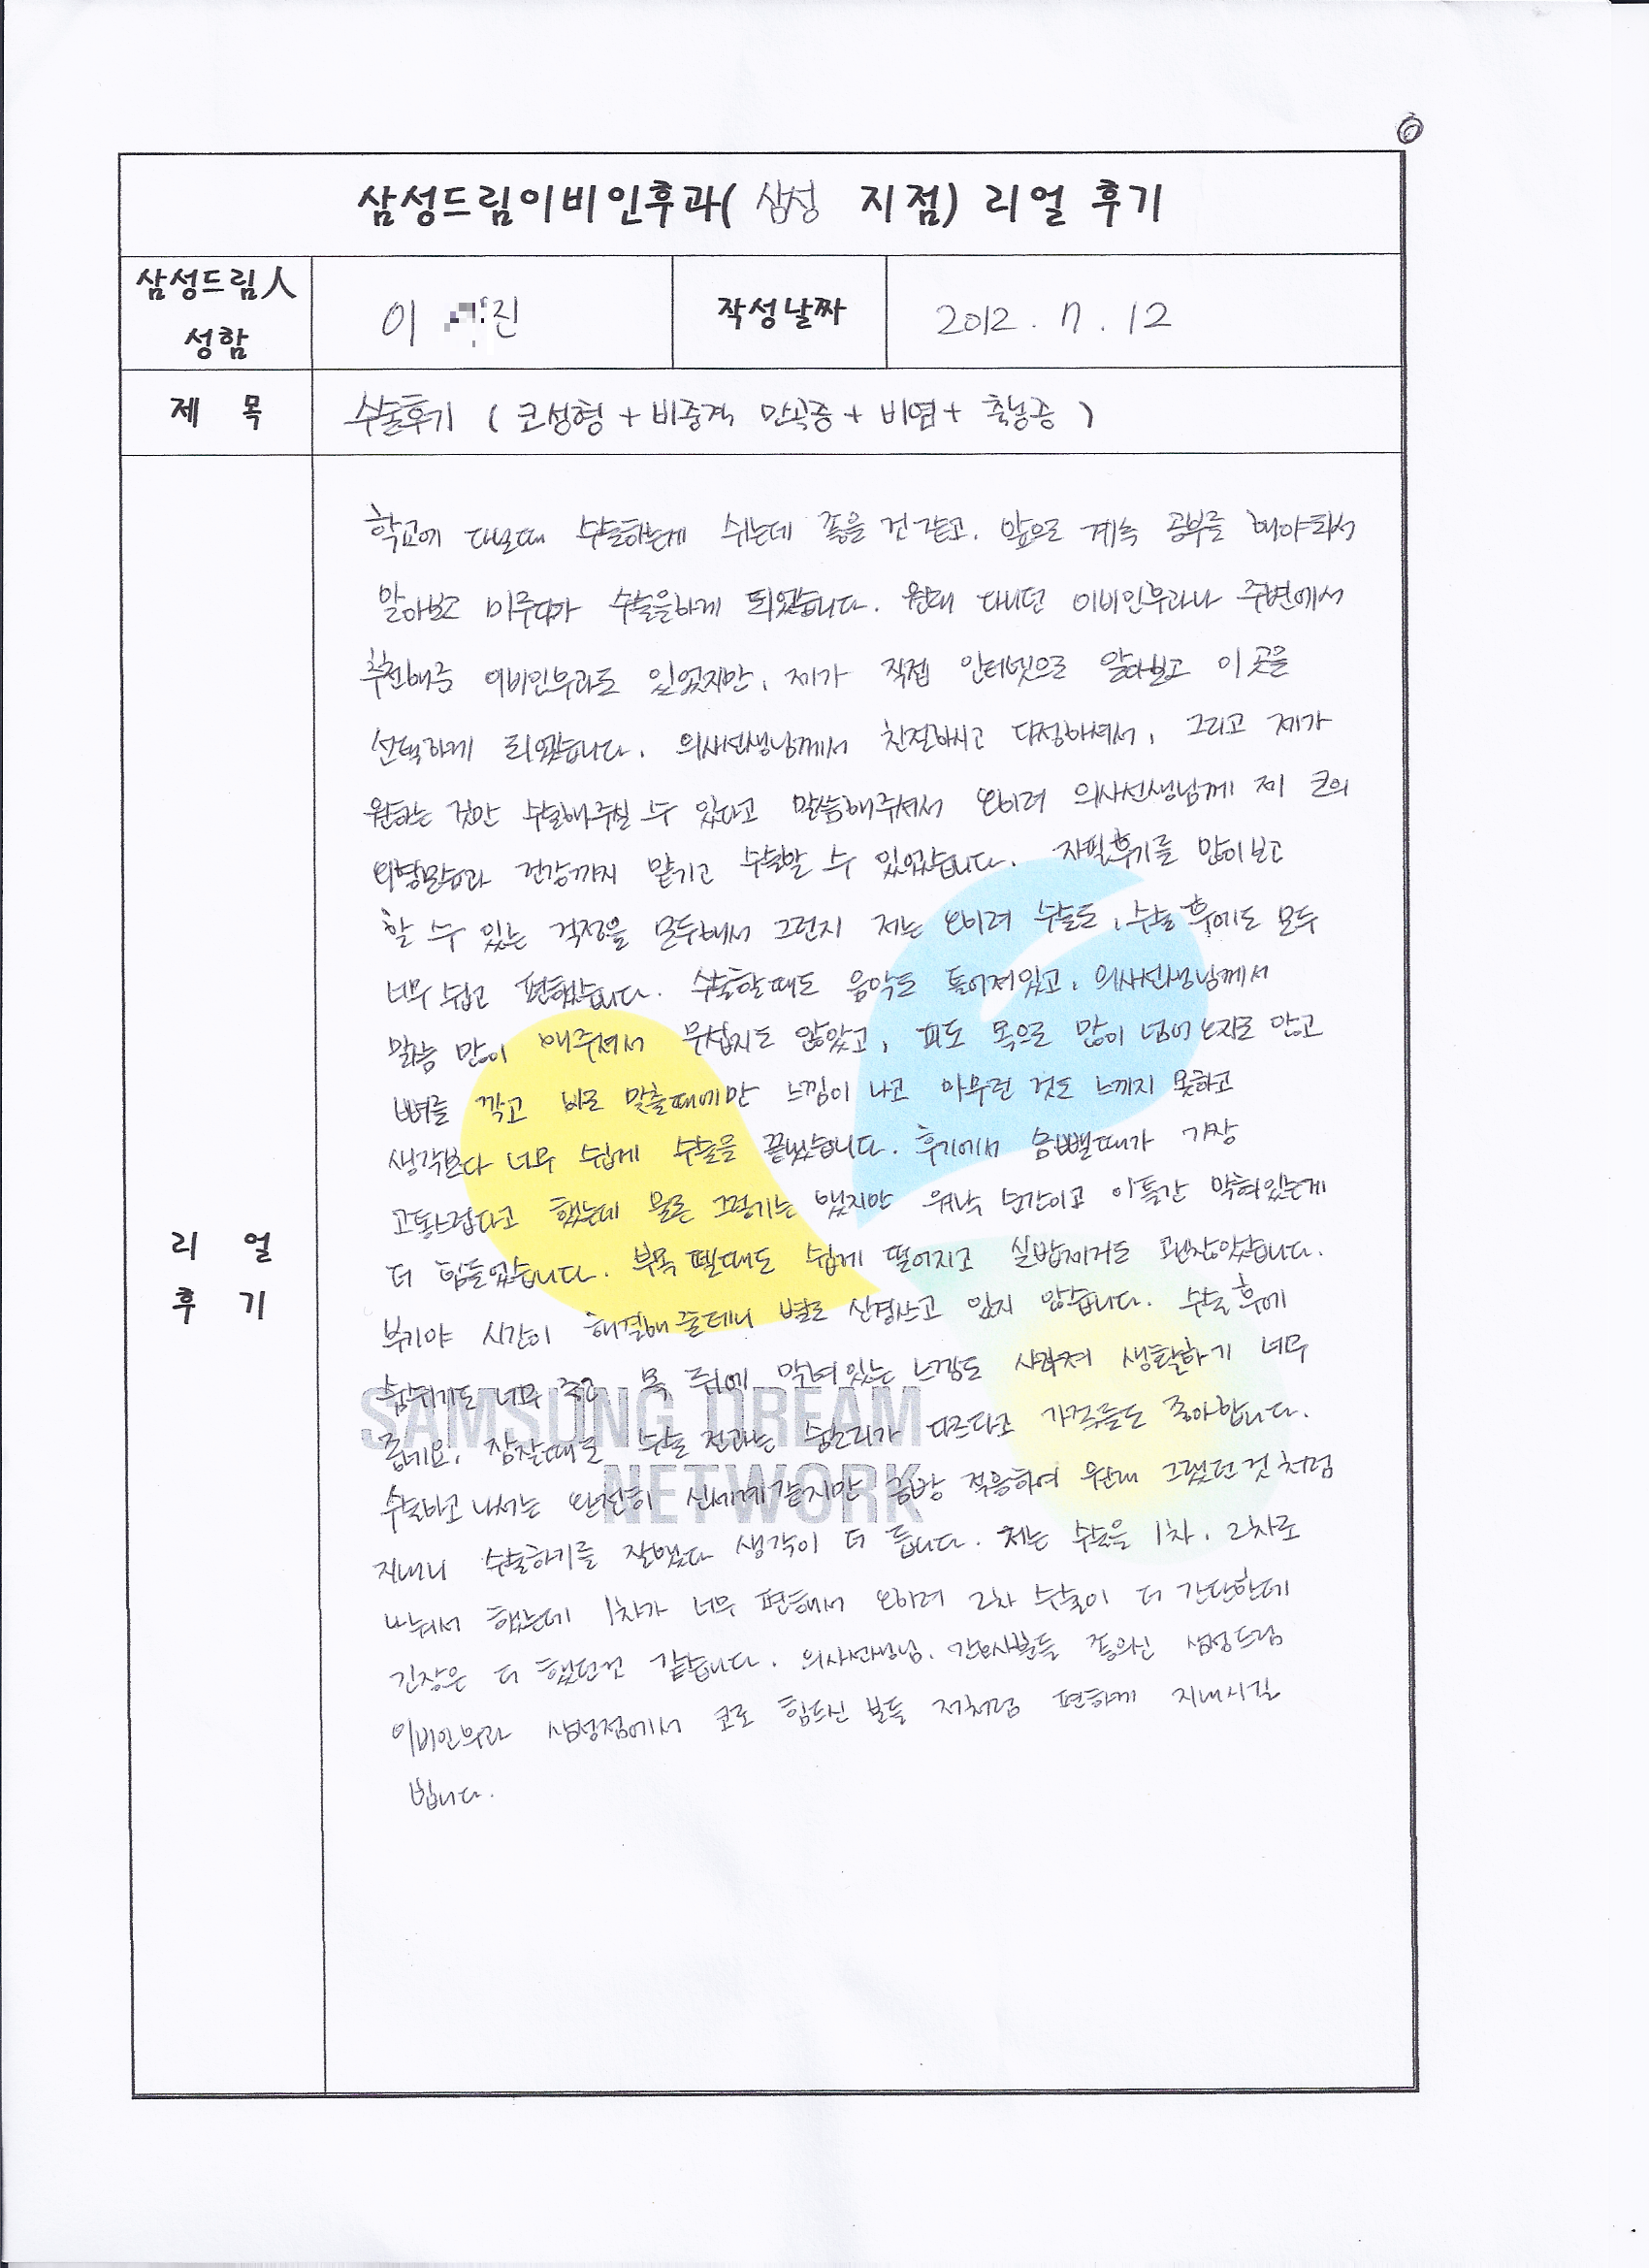 삼성드림이비인후과( 삼성 지점) 리얼 후기
삼성드림人 성함
이 진
작성날짜
2012. 7. 12
제 목
수술후기 ( 코성형 + 비중격 만곡증 + 비염 + 축농증 )
리 얼 후 기
학교에 다닐때 수술하는게 쉬는데 좋을 것 같고, 앞으로 계속 공부를 해야되서
알아보고 미루다가 수술을하게 되었습니다. 원래 다니던 이비인후과나 주변에서
추천해준 이비인후과도 있었지만, 제가 직접 인터넷으로 알아보고 이곳을
선택하게 되었습니다. 의사선생님께서 친절하시고 다정하셔서, 그리고 제가
원하는 것만 수술해주실 수 있다고 말씀해주셔서 오히려 의사선생님께 제 코의
외형모습과 건강까지 맡기고 수술할 수 있었습니다. 자필후기를 많이보고
할 수 있는 걱정을 모두해서 그런지 저는 오히려 수술도, 수술 후에도 모두
너무 쉽고 편했습니다. 수술할때도 음악도 틀어져있고, 의사선생님께서
말씀 많이 해주셔서 무섭지도 않았고, 피도 목으로 많이 넘어오지도 않고
뼈를 깎고 바로 맞출때에만 느낌이 나고 아무런 것도 느끼지 못하고
생각보다 너무 쉽게 수술을 끝냈습니다. 후기에서 솜뺄때가 가장
고통스럽다고 했는데 물론 그렇기는 했지만 워낙 순간이고 이틀간 막혀있는게
더 힘들었습니다. 부목 뗄때도 쉽게 떨어지고 실밥제거도 괜찮았습니다.
붓기야 시간이 해결해 줄테니 별로 신경쓰고 있지 않습니다. 수술 후에
숨쉬기도 너무 좋고 목 뒤에 막혀있는 느낌도 사라져 생활하기 너무
좋네요. 잠잘때도 수술 전과는 숨소리가 다르다고 가족들도 좋아합니다.
수술하고 나서는 완전히 신세계같지만 금방 적응하여 원래 그랬던것처럼
지내니 수술하기를 잘했다 생각이 더 듭니다. 저는 수술을 1차, 2차로
나눠서 했는데 1차가 너무 편해서 오히려 2차 수술이 더 간단한데
긴장은 더 했던것 같습니다. 의사선생님, 간호사분들 좋으신 삼성드림
이비인후과 삼성점에서 코로 힘드신 분들 저처럼 편하게 지내시길
빕니다.
SAMSUNG DREAM
NETWORK